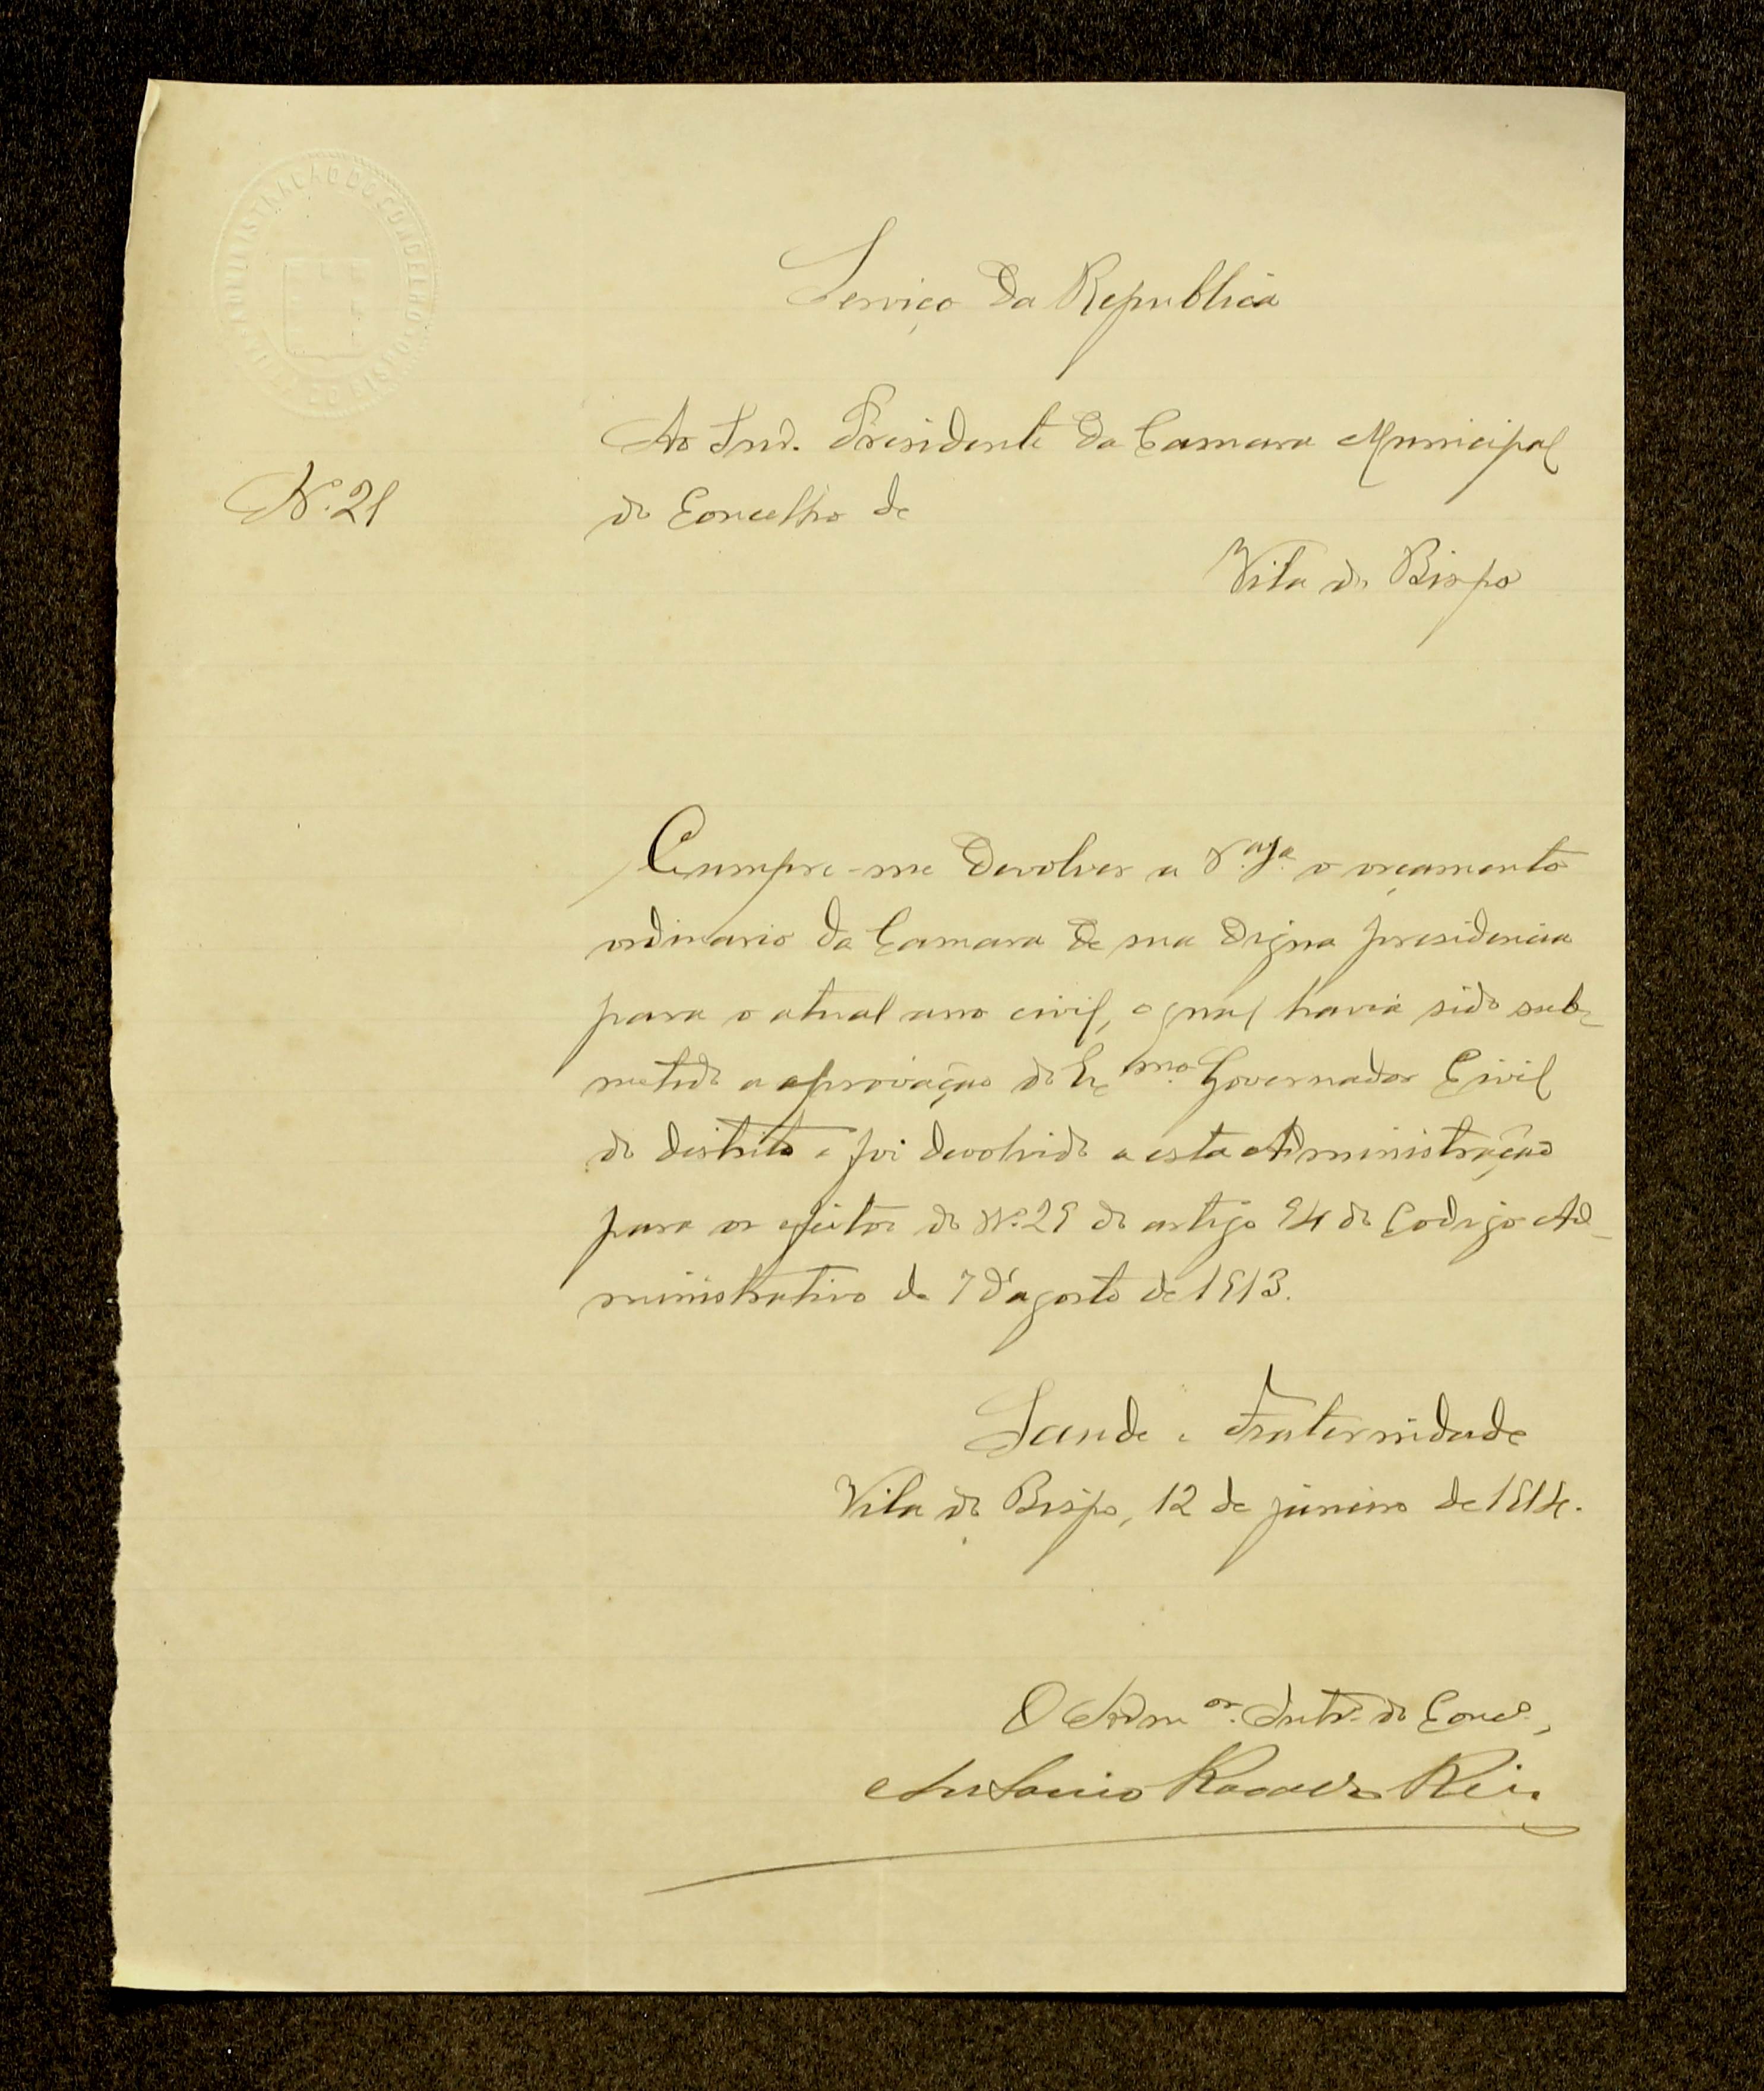 ADMINISTRAÇÃO DO CONCELHO DE VILA DO BISPO
Serviço da Republica
Ao Snr. Presidente da Camara Municipal
Nº. 21
do Concelho de
Vila do Bispo
Cumpre-me devolver a V.ª o orçamento
ordinario da Camara de sua digna presidencia
para o atual ano civil, o qual havia sido sub-
metido a aprovação do Ex.mo Governador Civil
do distrito e foi devolvido a esta Administração
para os efeitos do Nº. 29 do artigo 94 do Codigo Ad-
ministrativo de 7 d'agosto de 1913.
Saude e Fraternidade
Vila do Bispo, 12 de janeiro de 1914.
O Adm.or Intº. do Conc.º,
Antonio Reis